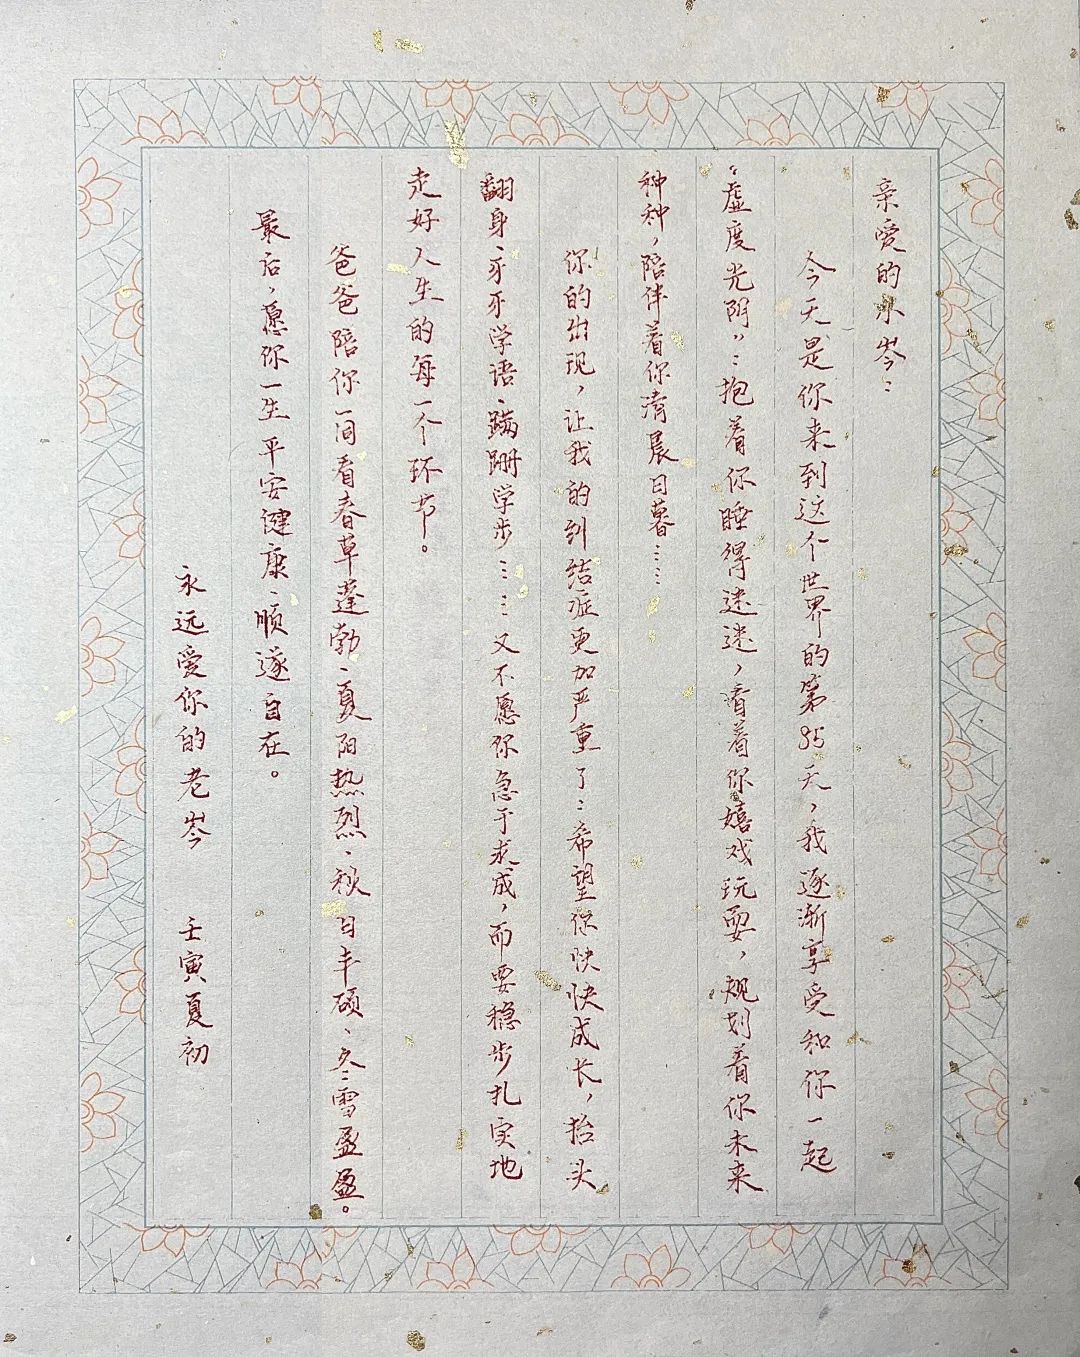 亲爱的小岑：
今天是你来到这个世界的第95天，我逐渐享受和你一起
“虚度光阴”：抱着你睡得迷迷，看着你嬉戏玩耍，规划着你未来
种种，陪伴着你清晨日暮……
你的出现，让我的纠结症更加严重了：希望你快快成长，抬头
翻身、牙牙学语、蹒跚学步……又不愿你急于求成，而要稳步扎实地
走好人生的每一个环节。
爸爸陪你一同看春草蓬勃、夏阳热烈、秋日丰硕、冬雪盈盈。
最后，愿你一生平安健康、顺遂自在。
永远爱你的老岑 壬寅夏初